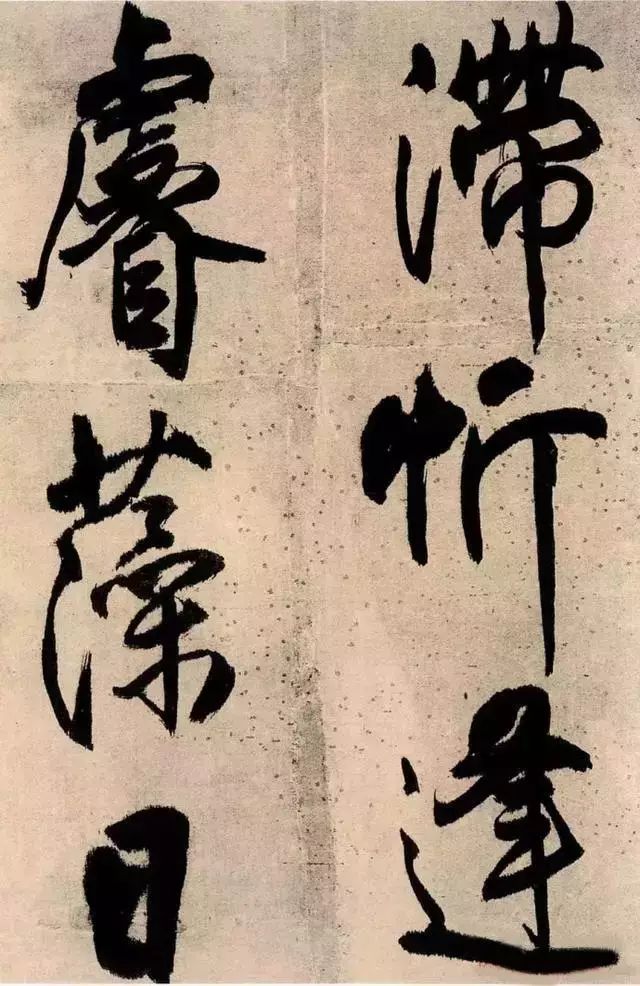 滯忻逢
睿藻日